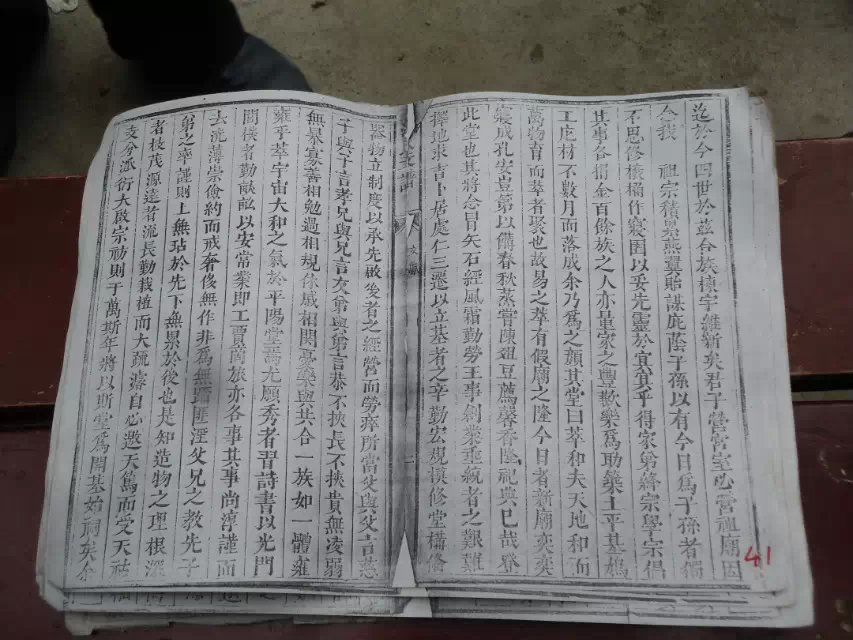 迄於今四世於茲合族棟宇維新矣君子營宮室必營祖廟因
念我　祖宗積累燕翼貽謀庇蔭子孫以有今日為子孫者獨
不思修榱桷作寢囿以妥先靈於宜其乎得家第絳宗學宗倡
其事各捐金百餘族之人亦量家之豐歉樂為助築土平基鳩
工庀材不數月而落成余乃為之顏其堂曰萃和夫天地和而
萬物育而萃者聚也故易之萃有假廟之隆今日者新廟奕奕
寢成孔安豈第以備春秋蒸嘗陳俎豆薦馨香隆祀典巳哉登
此堂也其將念冒矢石經風霜勤勞王事創業垂統者之艱難
擇地求吉卜居處仁三遷以立基者之辛勤宏規模修堂構偹
器物立制度以承先啟後者之經營而勞瘁所當父與父言慈
子與子言孝兄與兄言友弟與弟言恭不挾長不挾貴無凌弱
無暴寡善相勉過相規休戚相關憂樂與共合一族如一體雍
雍乎萃宇宙大和之氣於平陽堂焉尤願秀者習詩書以光門
閭儀者勤畎訟以安常業即工賈商旅亦各事其事尚淳謹而
去澆薄崇儉約而戒奢侈無作非為無蹈匪淫父兄之教先子
弟之率謹則上無玷於先下無累於後也是知造物之理根深
者枝茂源遠者流長勤栽植而大疏濬自必邀天篤而受天祜
支分派衍大啟宗祊則于萬斯年將以斯堂為開基始祠矣余
41